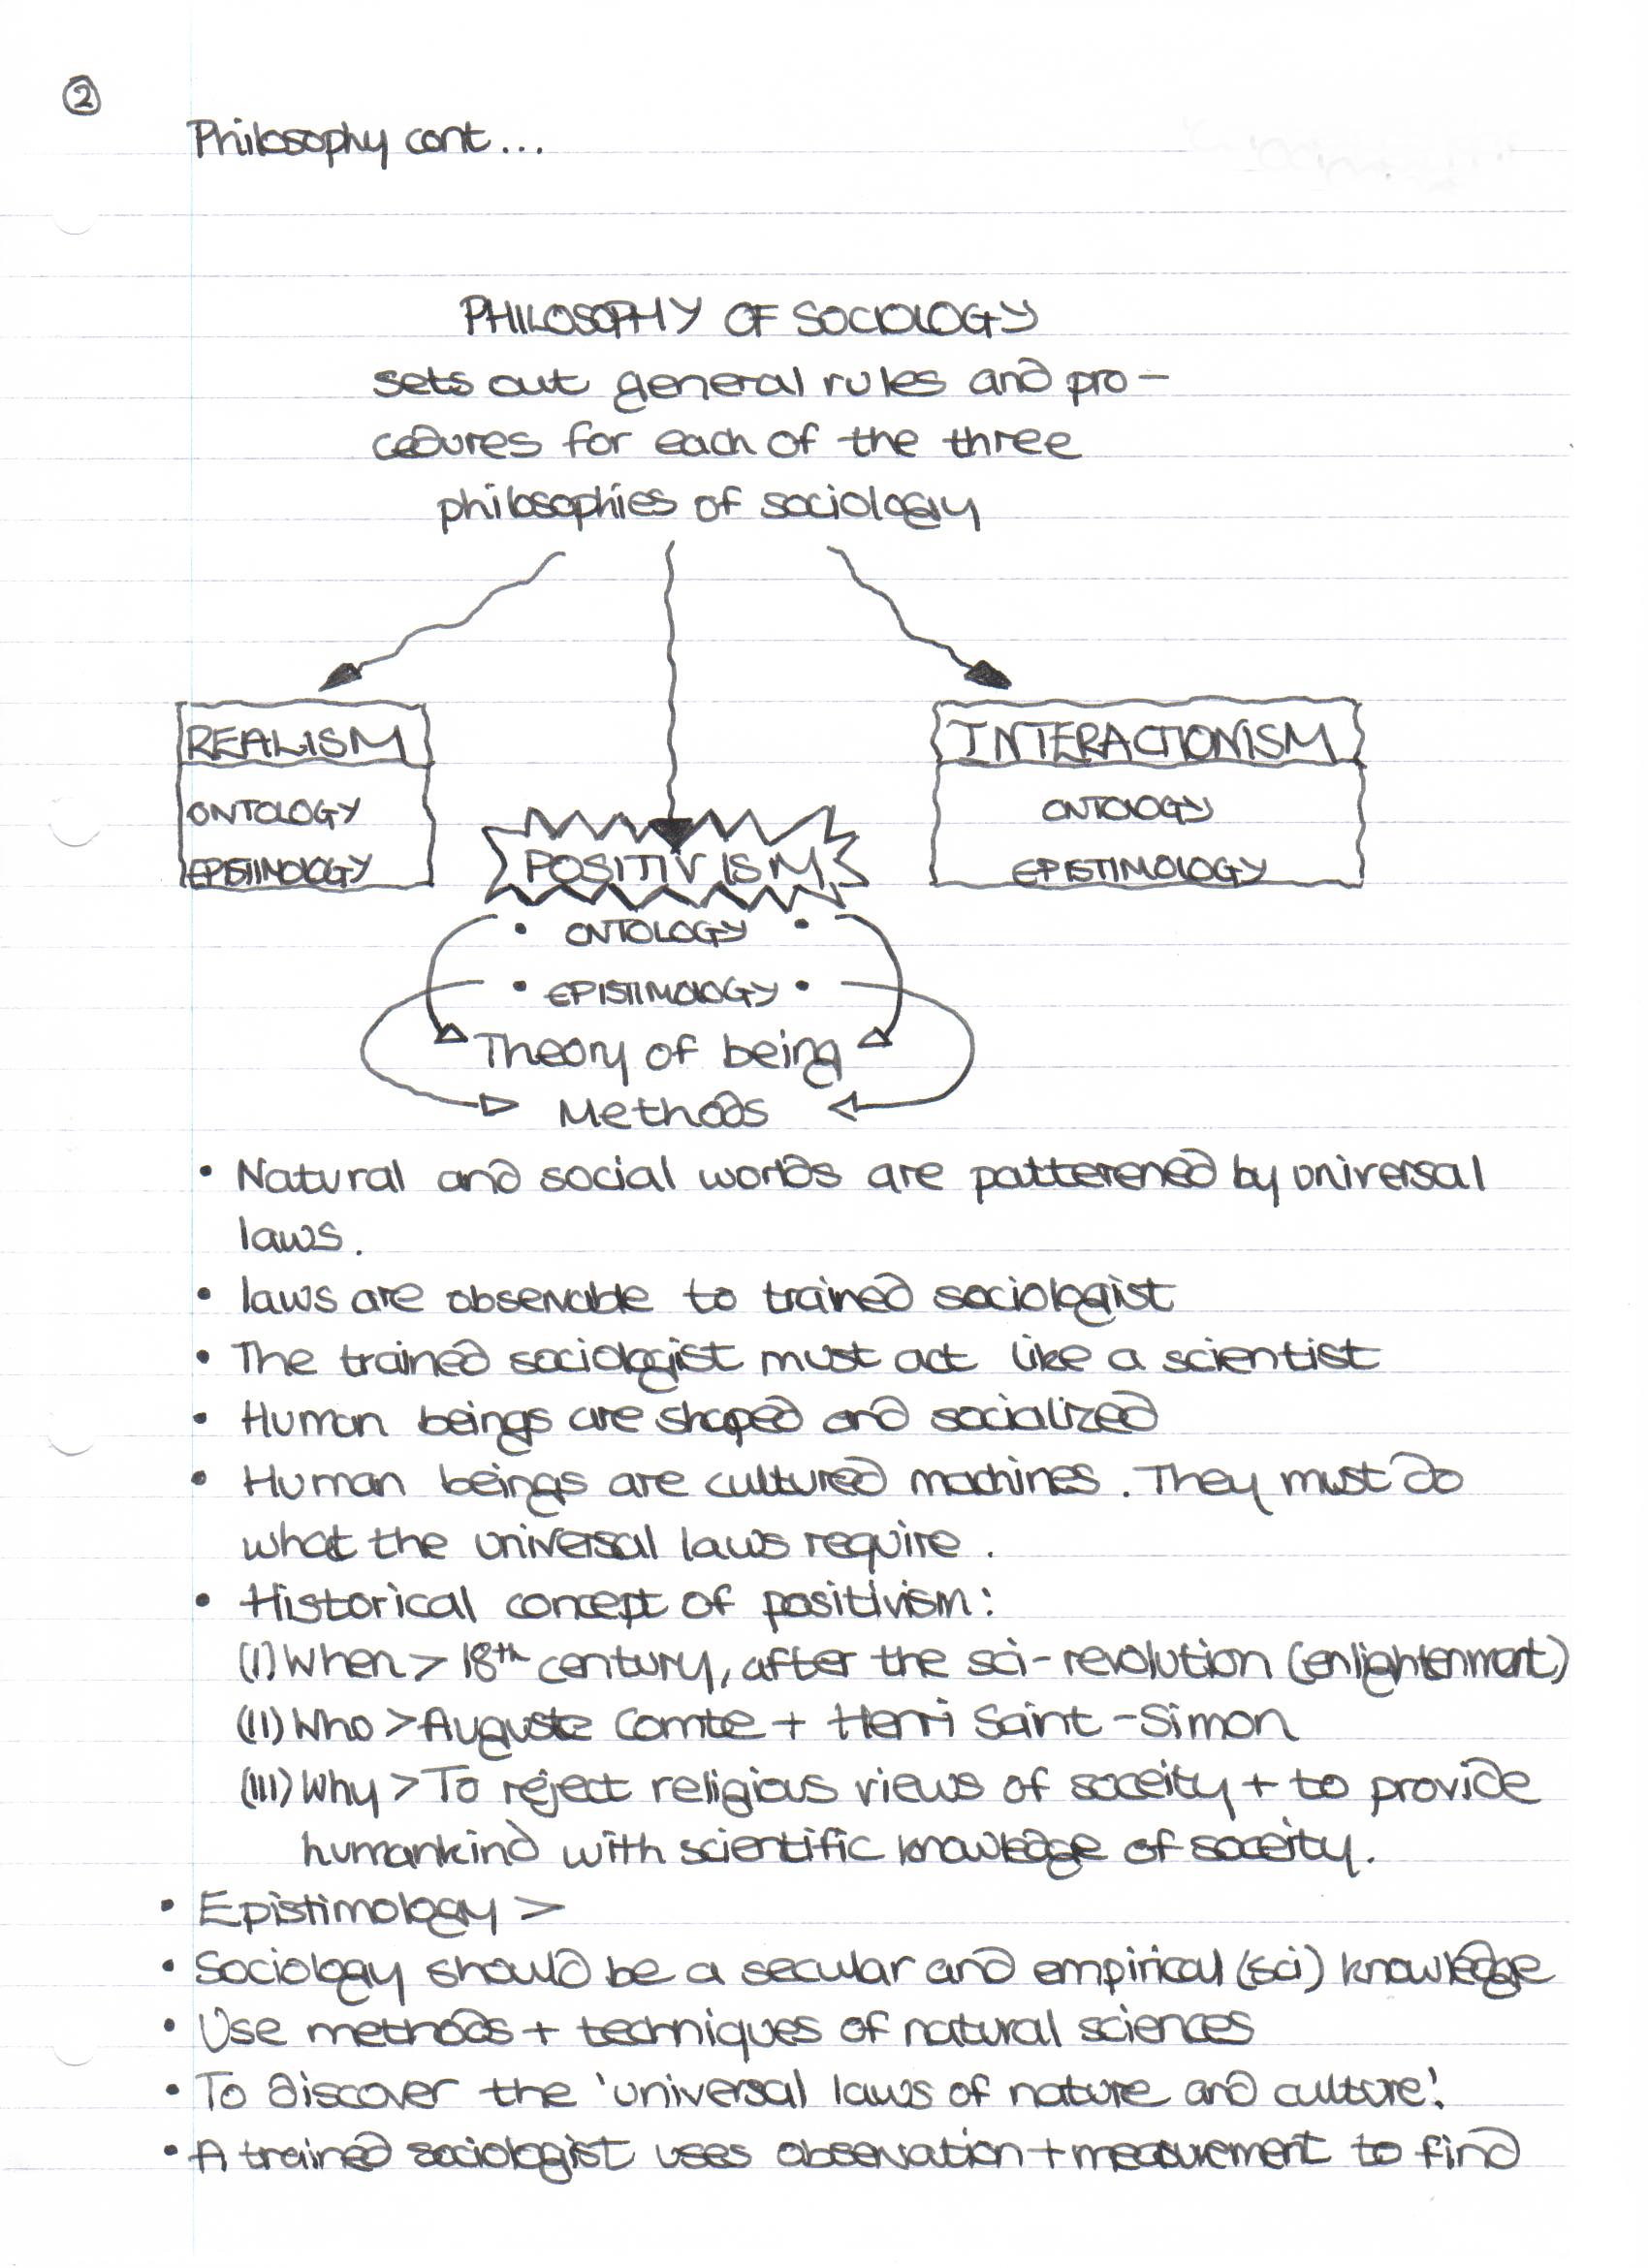 ②
Philosophy cont...
PHILOSOPHY OF SOCIOLOGY
sets out general rules and pro-
cedures for each of the three
philosophies of sociology
REALISM
ONTOLOGY
EPISTIMOLOGY
INTERACTIONISM
ONTOLOGY
EPISTIMOLOGY
POSITIVISM
• ONTOLOGY •
• EPISTIMOLOGY •
Theory of being
Methods
• Natural and social worlds are patterened by universal
laws.
• laws are observable to trained sociologist
• The trained sociologist must act like a scientist
• Human beings are shaped and socialized
• Human beings are cultured machines. They must do
what the universal laws require.
• Historical concept of positivism:
(I) When > 18th century, after the sci-revolution (enlightenment)
(II) Who > Auguste Comte + Henri Saint-Simon
(III) Why > To reject religious views of soceity + to provide
humankind with scientific knowledge of soceity.
• Epistimology >
• Sociology should be a secular and empirical (sci) knowledge
• Use methods + techniques of natural sciences
• To discover the 'universal laws of nature and culture'.
• A trained sociologist uses observation + measurement to find